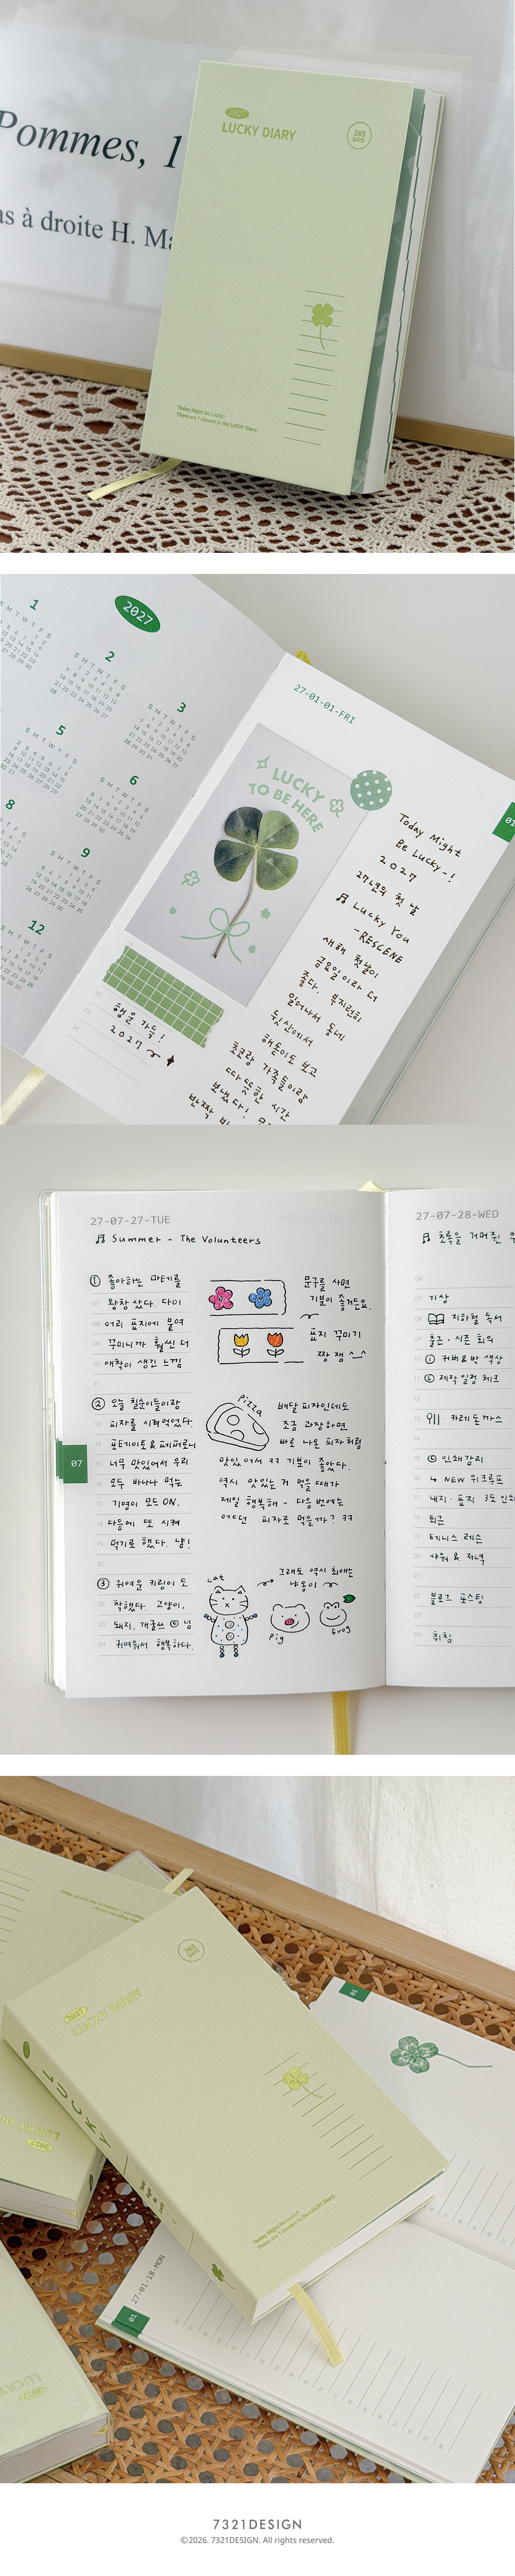 Pommes, 1
as à droite H. Ma
LUCKY DIARY
365
DAYS
Today Might be Lucky!
There are 7 clovers in the LUCKY Diary.
2027
1
2
3
5
6
8
9
12
S M T W T F S
27-01-01-FRI
01
LUCKY
TO BE HERE
Today Might
Be Lucky-!
2027
27년의 첫 날
Lucky You
-RESCENE
새해 첫날이
금요일이라 더
좋다. 부지런히
일어나서 동네
뒷산에서
해돋이도 보고
초코랑 가족들이랑
따뜻한 시간
보냈다!
반짝
행운 가득!
2027
27-07-27-TUE
Summer - The Volunteers
① 좋아하는 마테를
왕창 샀다. 다이
어리 표지에 붙여
꾸미니까 훨씬 더
애착이 생긴 느낌
문구를 사면
기분이 좋거든요.
표지 꾸미기
짱 잼 ^-^
② 오늘 칠순이들이랑
피자를 시켜먹었다.
포테이토 & 페퍼로니
너무 맛있어서 우리
모두 바나나 먹는
기영이 모드 ON.
다음에 또 시켜
먹기로 했다. 냠!
pizza
배달 피자인데도
조금 과장하면
바로 나온 피자처럼
맛있어서 ㅋㅋ 기분이 좋았다.
역시 맛있는 거 먹을 때가
제일 행복해 - 다음번에는
어떤 피자로 먹을까? ㅋㅋ
③ 귀여운 키링이 도
착했다. 고양이,
돼지, 개굴쓰 ☺ 넘
귀여워서 행복하다.
cat
그래도 역시 최애는
냐옹이
pig
frog
07
27-07-28-WED
기상
지하철 독서
출근 · 시즌 회의
① 커버 & 박 색상
② 제작 일정 체크
카레 돈까스
인쇄감리
↳ NEW 워크루프
내지 · 표지 3도 인쇄
퇴근
테니스 레슨
샤워 & 저녁
블로그 포스팅
취침
365
DAYS
2027
LUCKY DIARY
LUCKY
Today Might be Lucky!
There are 7 clovers in the LUCKY Diary.
01
27-01-18-MON
01
7321DESIGN
©2026. 7321DESIGN. All rights reserved.